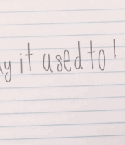 y it used to!